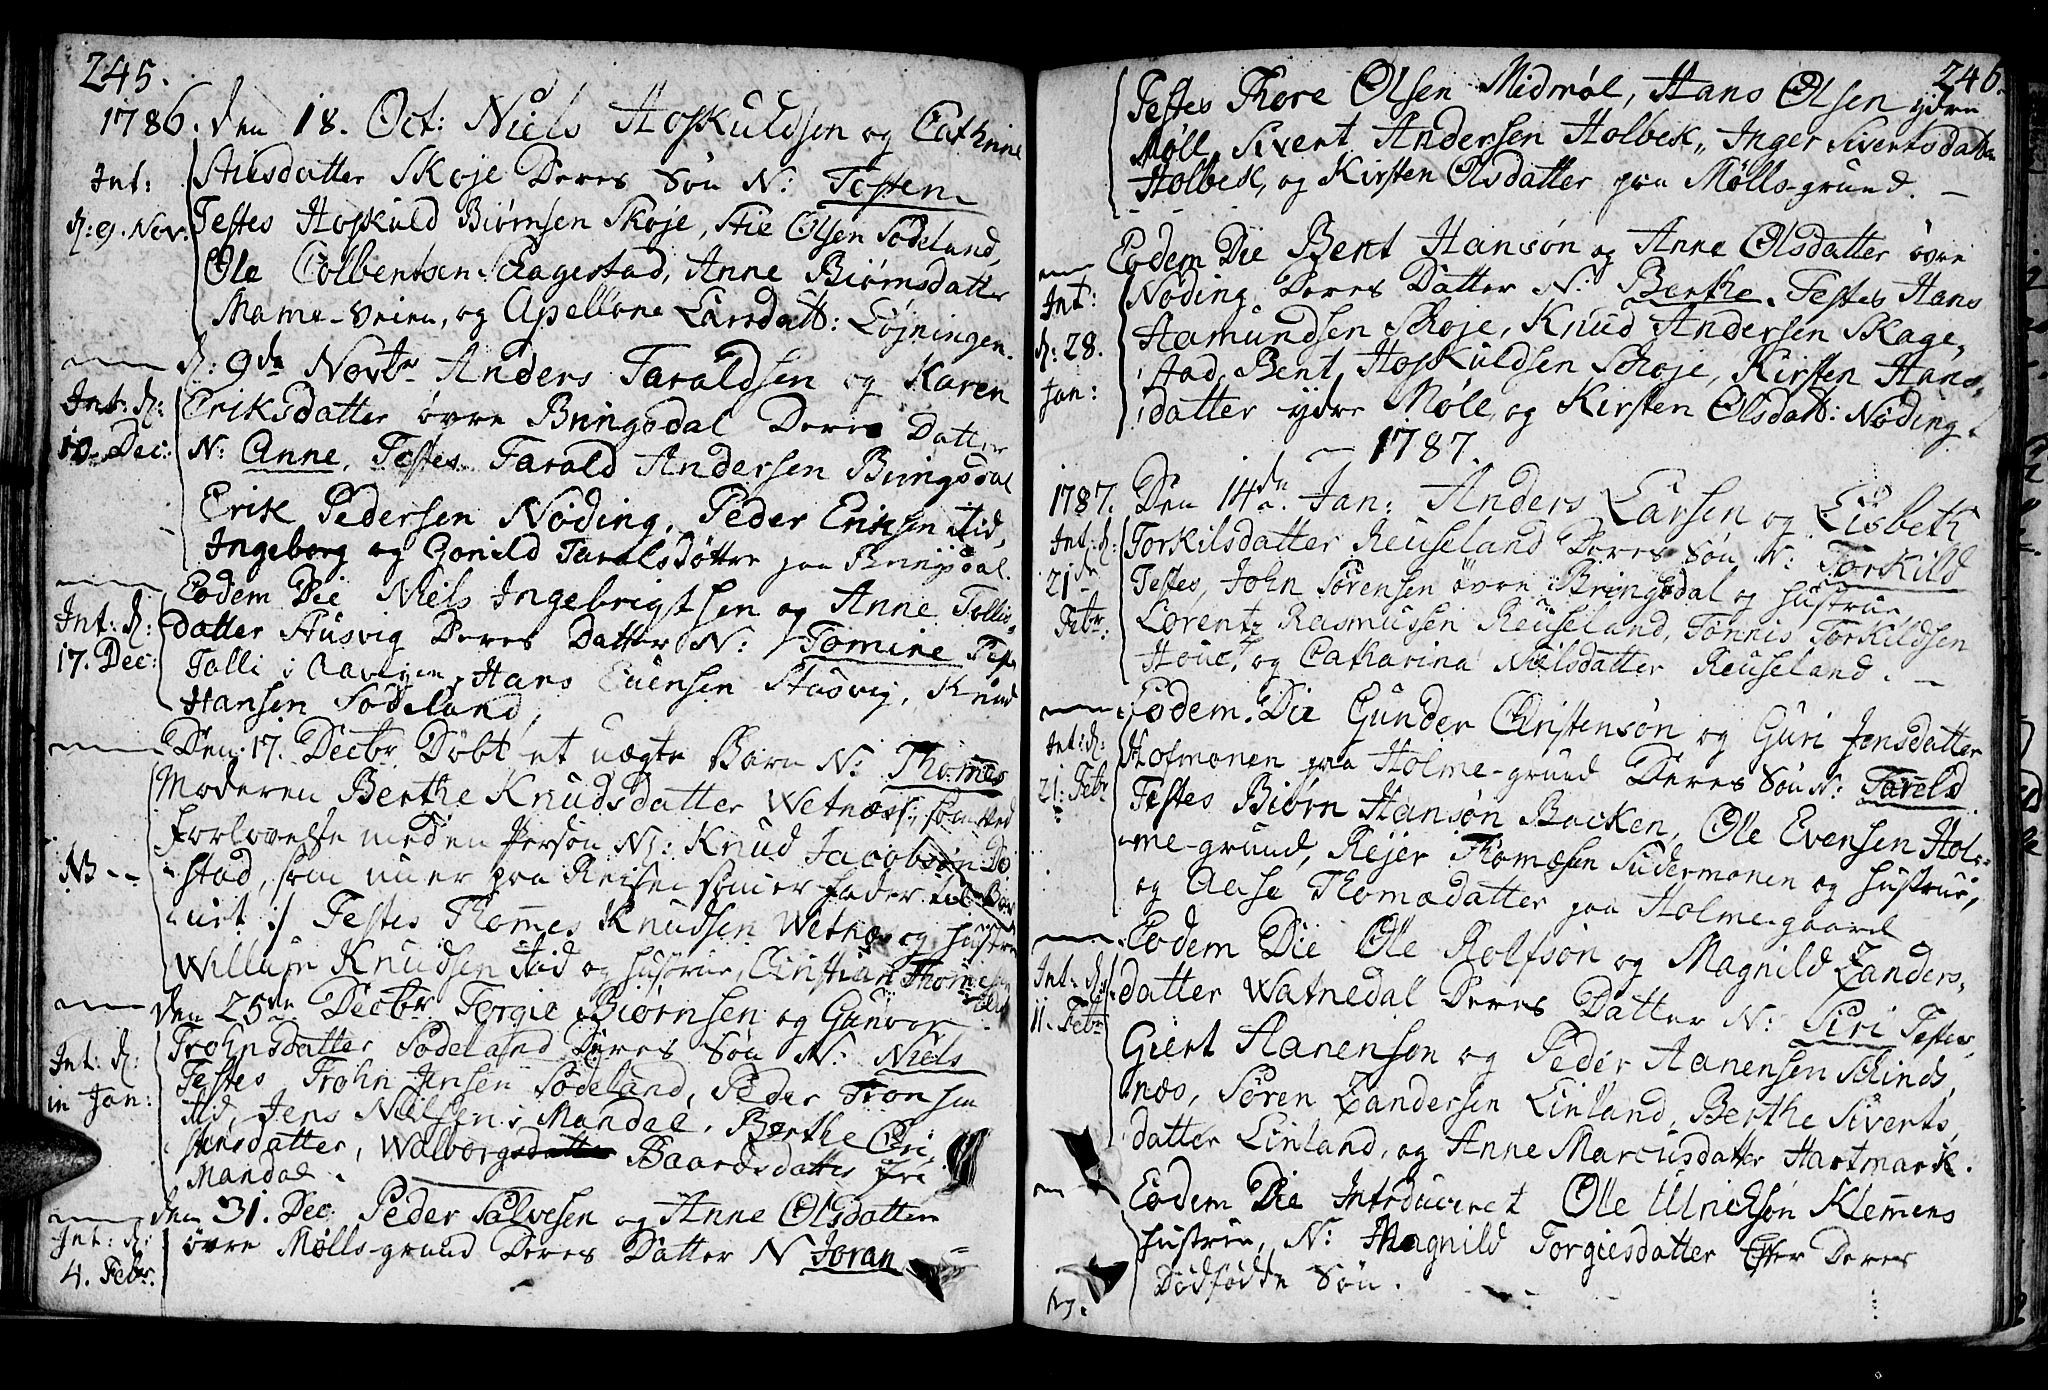 245.
1786. den 18. Oct: Niels Hoskuldsen og Cathrine
Int: Stiesdatter Skøje Deres Søn N: Tosten
d: 9. Nov. Testes Hoskuld Biørnsen Skøje, Stie Olsen Sødeland,
Ole Colbentsen Schagestad, Anne Biørnsdatter
Mame-Veien, og Apellone Larsdatt: Løjningen.
d: 9de Novbr Anders Taraldsen og Karen
Int: d: Eriksdatter øvre Bringsdal Deres Datter
10. Dec: N: Anne, Testes Tarald Andersen Bringsdal
Erik Pedersen Nøding, Peder Eriksen stid,
Ingeborg og Gonild Taralsdøttre paa Bringsdal.
Eodem Die Niels Ingebrigtsen og Anne Tollis-
Int: d: datter Stusvig Deres Datter N: Tomine Testes
17. Dec: Tolli i Aavigen, Hans Evensen Stusvig, Knud
Hansen Sødeland,
Den 17. Decbr Døbt et uægte Barn N: Thomes
Moderen Berthe Knudsdatter Wetnæs, som
forlovelse med en Person N: Knud Jacobsøn
NB -- stad, som nu er paa Reiser som er fader til Bar-
-net :/ Testes Thomes Knudsen Wetnæs og hustru
Willum Knudsen stid og hustrue, Christian Thomesen
den 25de Decbr Torgie Biørnsen og Gunvor
Int: d: Trohnsdatter Sødeland Deres Søn N: Niels
in Jan: Testes Trohn Jensen Sødeland, Peder Tronsen
stid, Jens Nielsen i Mandal, Berthe
Jensdatter, Walborgsdatter Baardsdatter
Mandal.
den 31. Dec: Peder Salvesen og Anne Olsdatter
Int: d: øvre Mølls-grund Deres Datter N Joran
4. Febr:
246.
Testes Thore Olsen Midmøl, Hans Olsen ydre
Møll, Sivert Andersen Holbek, Inger Sivertsdatter
Holbek, og Kirsten Olsdatter paa Mølls-grund. -
Eodem Die Bent Hansøn og Anne Olsdatter øvre
Int: Nøding, Deres Datter N: Berthe. Testes Hans
Hamundsen Schøje, Knud Andersen Skage-
d: 28. stad, Bent Hoskuldsen Schøje, Kirsten Hans-
Jan: datter ydre Møll, og Kirsten Olsdatt: Nøding.
1787.
1787. Den 14de Jan: Anders Larsen og Lisbeth
Int: d: Torkilsdatter Reuseland Deres Søn N: Torkild
21de Testes, John Sørensen øvre Bringsdal og hustrue,
Febr: Lorentz Rasmussen Reuseland, Tønnis Torkildsen
Houe, og Catharina Nielsdatter Reuseland. -
Eodem Die Gunder Christensøn og Guri Jensdatter
Int: d: Hofmonen paa Holme-grund Deres Søn N: Tareld
21. Febr Testes Biørn Hansøn Backen, Ole Evensen Hol-
-me-grund, Rejer Thomæsen Sudermonen og hustrue,
og Aase Thomædatter paa Holme-gaard
Eodem Die Ole Rolfsøn og Magnild Zanders-
Int: d: datter Watnedal Deres Datter N: Siri Testes,
11. Febr Giert Aanensøn og Peder Aanensen Schinds-
næs, Søren Zandersen Linland, Berthe Siverts-
datter Linland, og Anne Marcusdatter Hartmark.
Eodem Die Introduceret Ole Ulrichsøn Klemmens
hustrue, N: Magnild Torgiesdatter Efter Deres
Dødfødde Søn.